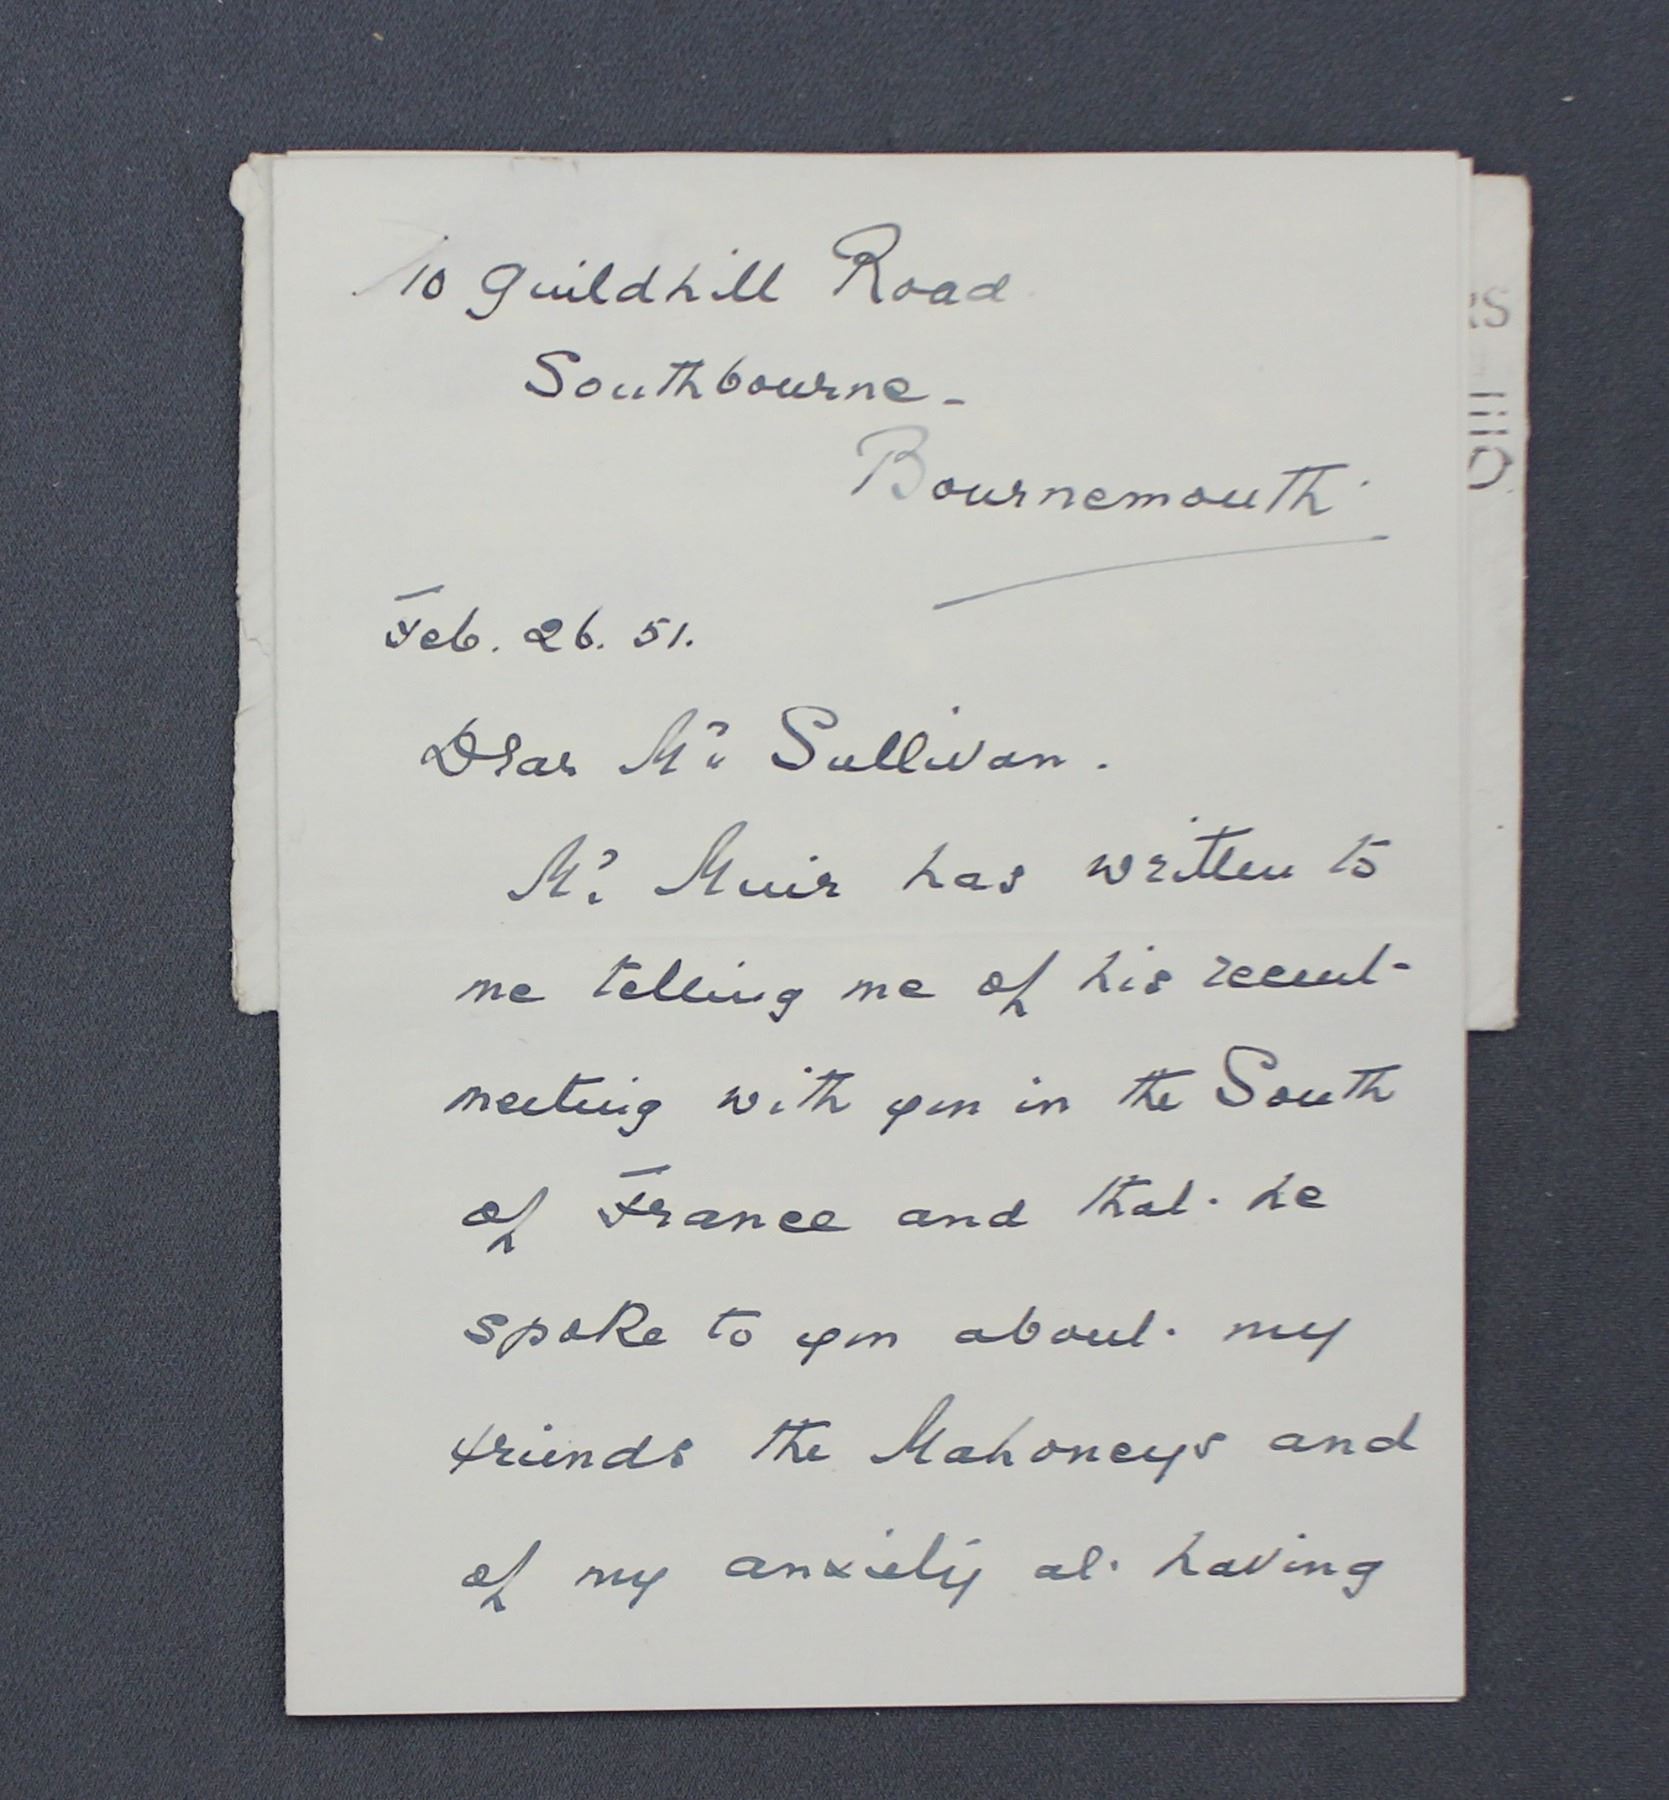 10 Guildhill Road
Southbourne -
Bournemouth.
Feb. 26. 51.
Dear Mr. Sullivan.
Mr. Muir has written to
me telling me of his recent
meeting with you in the South
of France and that he
spoke to you about my
friends the Mahoneys and
of my anxiety at having